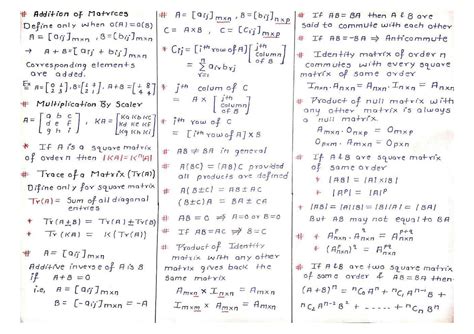 # Addition of Matrices
Define only when O(A)=O(B)
A = [aij]m×n, B = [bij]m×n
→ A+B = [aij+bij]m×n
Corresponding elements
are added.
# Multiplication By Scaler
A = [a b c
d e f
g h i], KA = [Ka Kb Kc
Kd Ke Kf
Kg Kh Ki]
* If A is a square matrix
of order n then |KA| = Kⁿ|A|
# Trace of a Matrix (Tr(A))
Define only for square matrix
Tr(A) = Sum of all diagonal
entries
* Tr(A±B) = Tr(A) ± Tr(B)
* Tr(KA) = K(Tr(A))
# A = [aij]m×n
Additive inverse of A is B
if A+B=0
i.e, A = [aij]m×n
B = [-aij]m×n = -A
# A = [aij]m×n, B = [bij]n×p
C = A×B, C = [Cij]m×p
* Cij = [ith row of A] [jth column of B]
= Σ air brj
* jth colum of C
= A × [jth column of B]
* ith row of C
= [ith row of A] × B
* AB ≠ BA in general
* A(BC) = (AB)C provided
all products are defined
* A(B±C) = AB±AC
(B±C)A = BA±CA
* AB=0 ⇏ A=0 or B=0
* If AB=AC ⇏ B=C
* Product of Identity
matrix with any other
matrix gives back the
same matrix
Am×n × In×n = Am×n
Im×m × Am×n = Am×n
# If AB=BA then A & B are
said to commute with each other
# If AB=-BA ⇒ Anticommute
# Identity matrix of order n
commutes with every square
matrix of same order
In×n · An×n = An×n · In×n = An×n
* Product of null matrix with
any other matrix is always
a null matrix
Am×n · On×p = Om×p
Op×m · Am×n = Op×n
# If A & B are square matrix
of same order
* |AB| = |A|×|B|
* |Aᵖ| = |A|ᵖ
* |AB| = |A||B| = |B||A| = |BA|
But AB may not equal to BA
# If A & B are two square matrix
of same order & AB=BA then